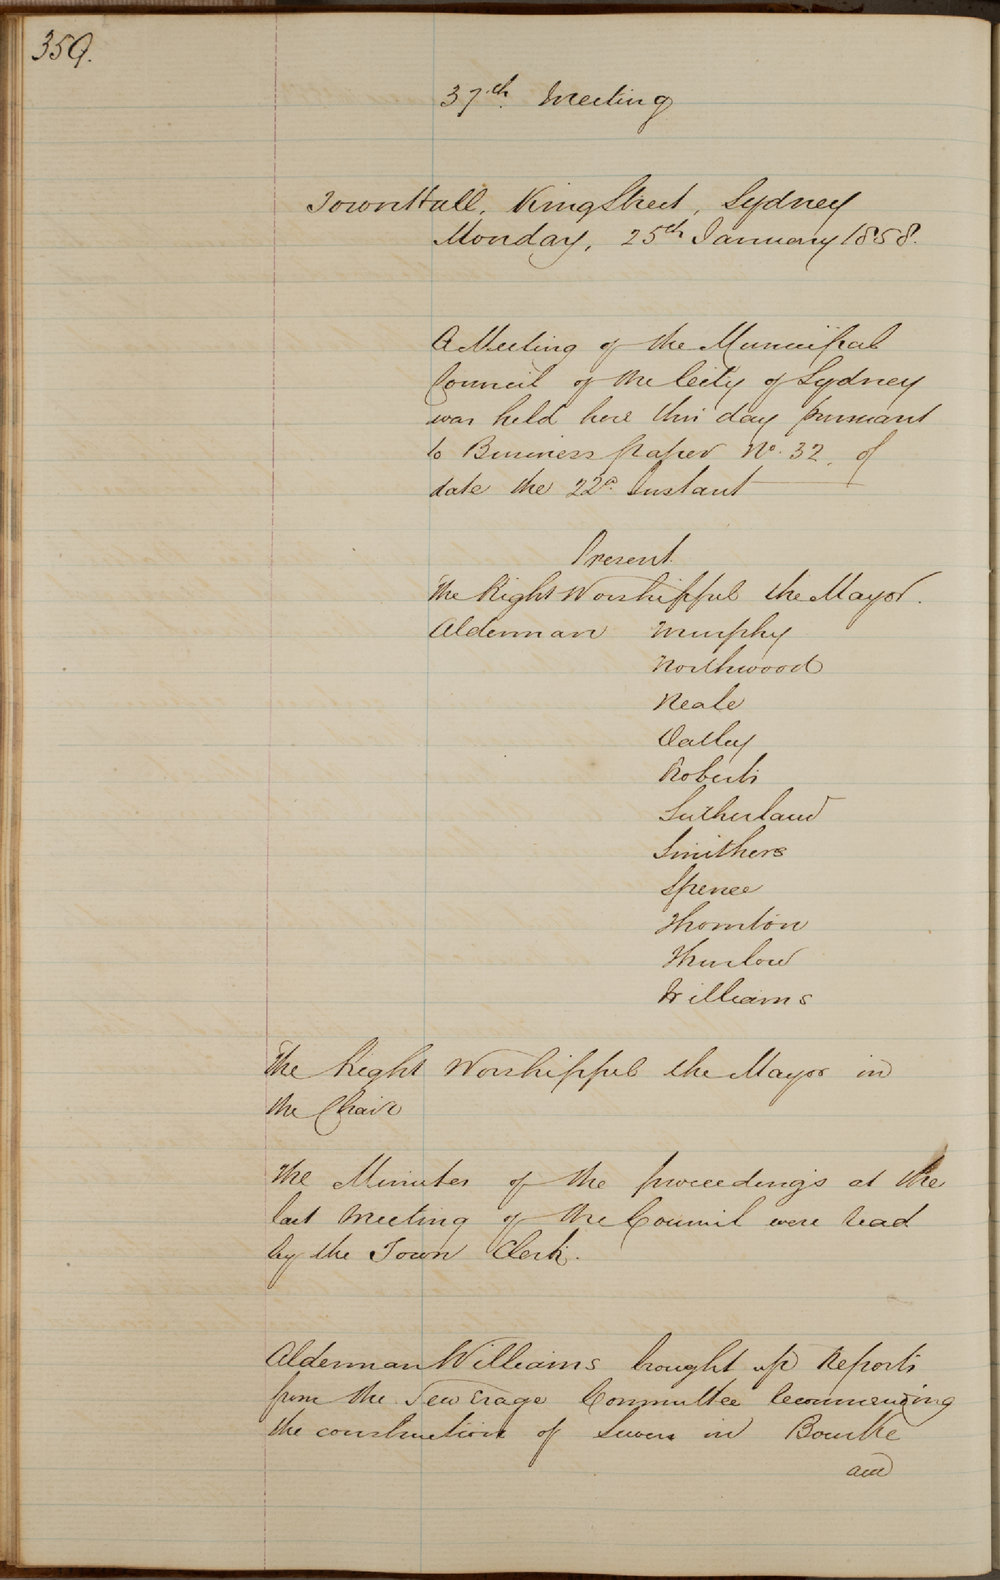 359.
37th Meeting
Town Hall, King Street, Sydney
Monday, 25th January 1858.
A Meeting of the Municipal
Council of the City of Sydney
was held here this day pursuant
to Business paper No. 32, of
date the 22d. Instant
Present
The Right Worshipful the Mayor.
Alderman Murphy
Northwood
Neale
Oatley
Roberts
Sutherland
Smithers
Spence
Thornton
Thurlow
Williams
The Right Worshipful the Mayor in
the Chair
The Minutes of the proceedings at the
last Meeting of the Council were read
by the Town Clerk.
Alderman Williams brought up Reports
from the Sewerage Committee recommending
the construction of Sewers in Bourke
and